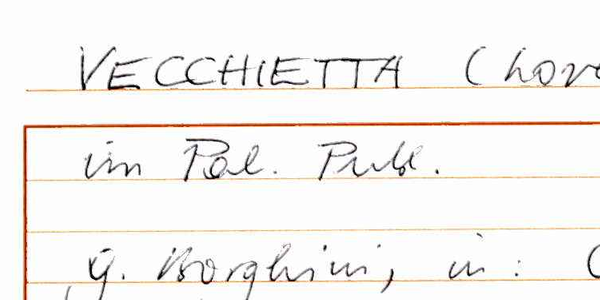 VECCHIETTA (Lore
in Pal. Pubbl.
G. Borghini, in: C